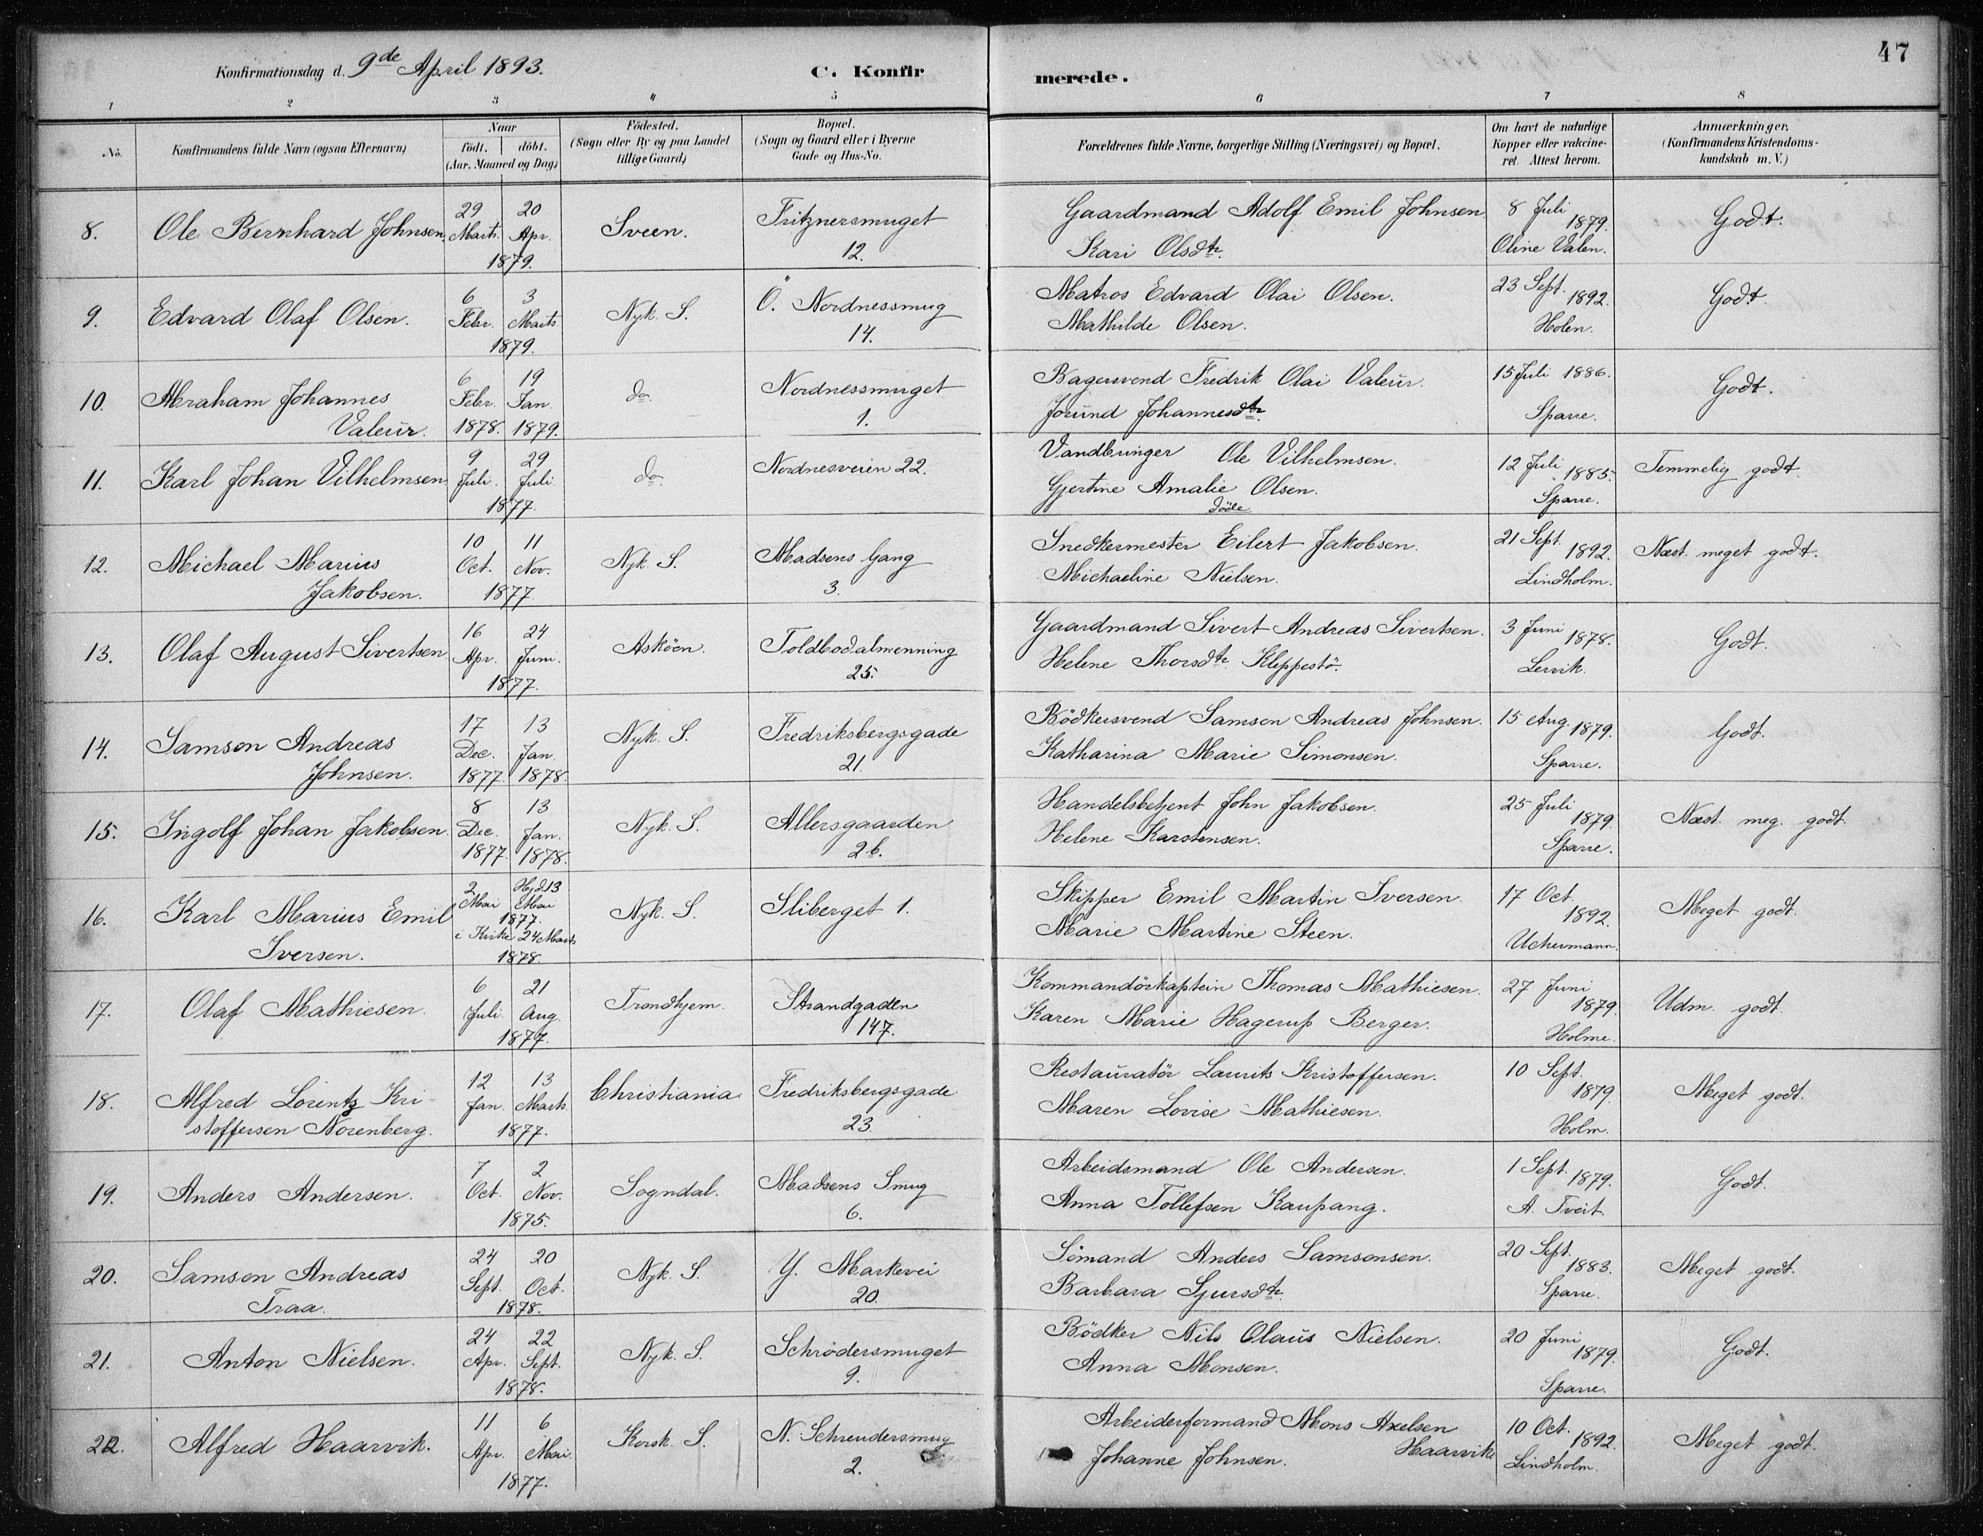 47
Konfirmationsdag d. 9de April 1893.
C. Konfirmerede.
1 2 3 4 5 6 7 8
No.
Konfirmandens fulde Navn (ogsaa Efternavn)
Naar
født. | döbt.
(Aar, Maaned og Dag)
Födested.
(Sogn eller By og paa Landet
tillige Gaard)
Bopæl.
(Sogn og Gaard eller i Byerne
Gade og Hus-No.
Forældrenes fulde Navne, borgerlige Stilling (Næringsvei) og Bopæl.
Om havt de naturlige
Kopper eller vakcine-
ret. Attest herom.
Anmærkninger.
(Konfirmandens Kristendoms-
kundskab m. V.)
8. Ole Bernhard Johnsen. 29 Marts 20 Apr. 1879. Sveen. Fritznersmuget 12. Gaardmand Adolf Emil Johnsen 8 Juli 1879. Godt.
Kari Olsdtr. Oline Valen.
9. Edvard Olaf Olsen. 6 Febr. 3 Marts 1879. Nyk. S. Ö. Nordnessmug 14. Matros Edvard Olai Olsen. 23 Sept. 1892. Godt.
Mathilde Olsen. Holen.
10. Abraham Johannes Valeur. 6 Febr. 1878. 19 Jan. 1879. do. Nordnessmuget 1. Bagersvend Fredrik Olai Valeur. 15 Juli 1886. Godt.
Jorund Johannesdtr. Sparre.
11. Karl Johan Vilhelmsen 9 Juli. 29 Juli 1877. do. Nordnesveien 22. Vandbringer Ole Vilhelmsen. 12 Juli 1885. Temmelig godt.
Gjertine Amalie Olsen. Sparre.
döde
12. Michael Marius Jakobsen. 10 Oct. 11 Nov. 1877. Nyk. S. Madsens Gang 3. Snedkermester Eilert Jakobsen. 21 Sept. 1892. Næst. meget godt.
Michaeline Nielsen. Lindholm.
13. Olaf August Sivertsen 16 Apr. 24 Juni. 1877. Asköen. Toldbodalmenning 25. Gaardmand Sivert Andreas Sivertsen. 3 Juni 1878. Godt.
Helene Thorsdtr Kleppestö. Lervik.
14. Samson Andreas Johnsen. 17 Dec. 1877. 13 Jan. 1878. Nyk. S. Fredriksbergsgade 21. Bödkersvend Samson Andreas Johnsen. 15 Aug. 1879. Godt.
Katharina Marie Simonsen. Sparre.
15. Ingolf Johan Jakobsen 8 Dec. 1877. 13 Jan. 1878. Nyk. S. Allersgaarden 2b. Handelsbetjent John Jakobsen. 25 Juli 1879. Næst. meg. godt.
Helene Karstensen. Sparre.
16. Karl Marius Emil Iversen. 2 Mai Hjd. 13 Mai 1877. i Kirke 24 Marts 1878. Nyk. S. Sliberget 1. Skipper Emil Martin Iversen. 17 Oct. 1892. Meget godt.
Marie Martine Steen. Uchermann.
17. Olaf Mathiesen. 6 Juli 21 Aug. 1877. Trondhjem. Strandgaden 147. Kommandörkaptein Thomas Mathiesen. 27 Juni 1879. Udm. godt.
Karen Marie Hagerup Berger. Holme.
18. Alfred Lorentz Kristoffersen Norenberg. 12 Jan. 13 Marts 1877. Christiania Fredriksbergsgade 23. Restauratör Laurits Kristoffersen. 10 Sept. 1879. Meget godt.
Maren Lovise Mathiesen. Holm.
19. Anders Andersen. 7 Oct. 2 Nov. 1875. Sogndal. Madsens Smug 6. Arbeidsmand Ole Andersen. 1 Sept. 1879. Godt.
Anna Tollefsen Kaupang. A. Tveit.
20. Samson Andreas Traa. 24 Sept. 20 Oct. 1878. Nyk. S. Y. Markevei 20. Sömand Anders Samsonsen. 20 Sept. 1883. Meget godt.
Barbara Sjursdtr. Sparre.
21. Anton Nielsen. 24 Apr. 22 Sept. 1878. Nyk. S. Schrödersmuget 9. Bödker Nils Olaus Nielsen. 20 Juni 1879. Godt.
Anna Monsen. Sparre.
22. Alfred Haarvik. 11 Apr. 6 Mai 1877. Korsk. S. N. Schreudersmug 2. Arbeiderformand Mons Axelsen Haarvik 10 Oct. 1892. Meget godt.
Johanne Johnsen. Lindholm.